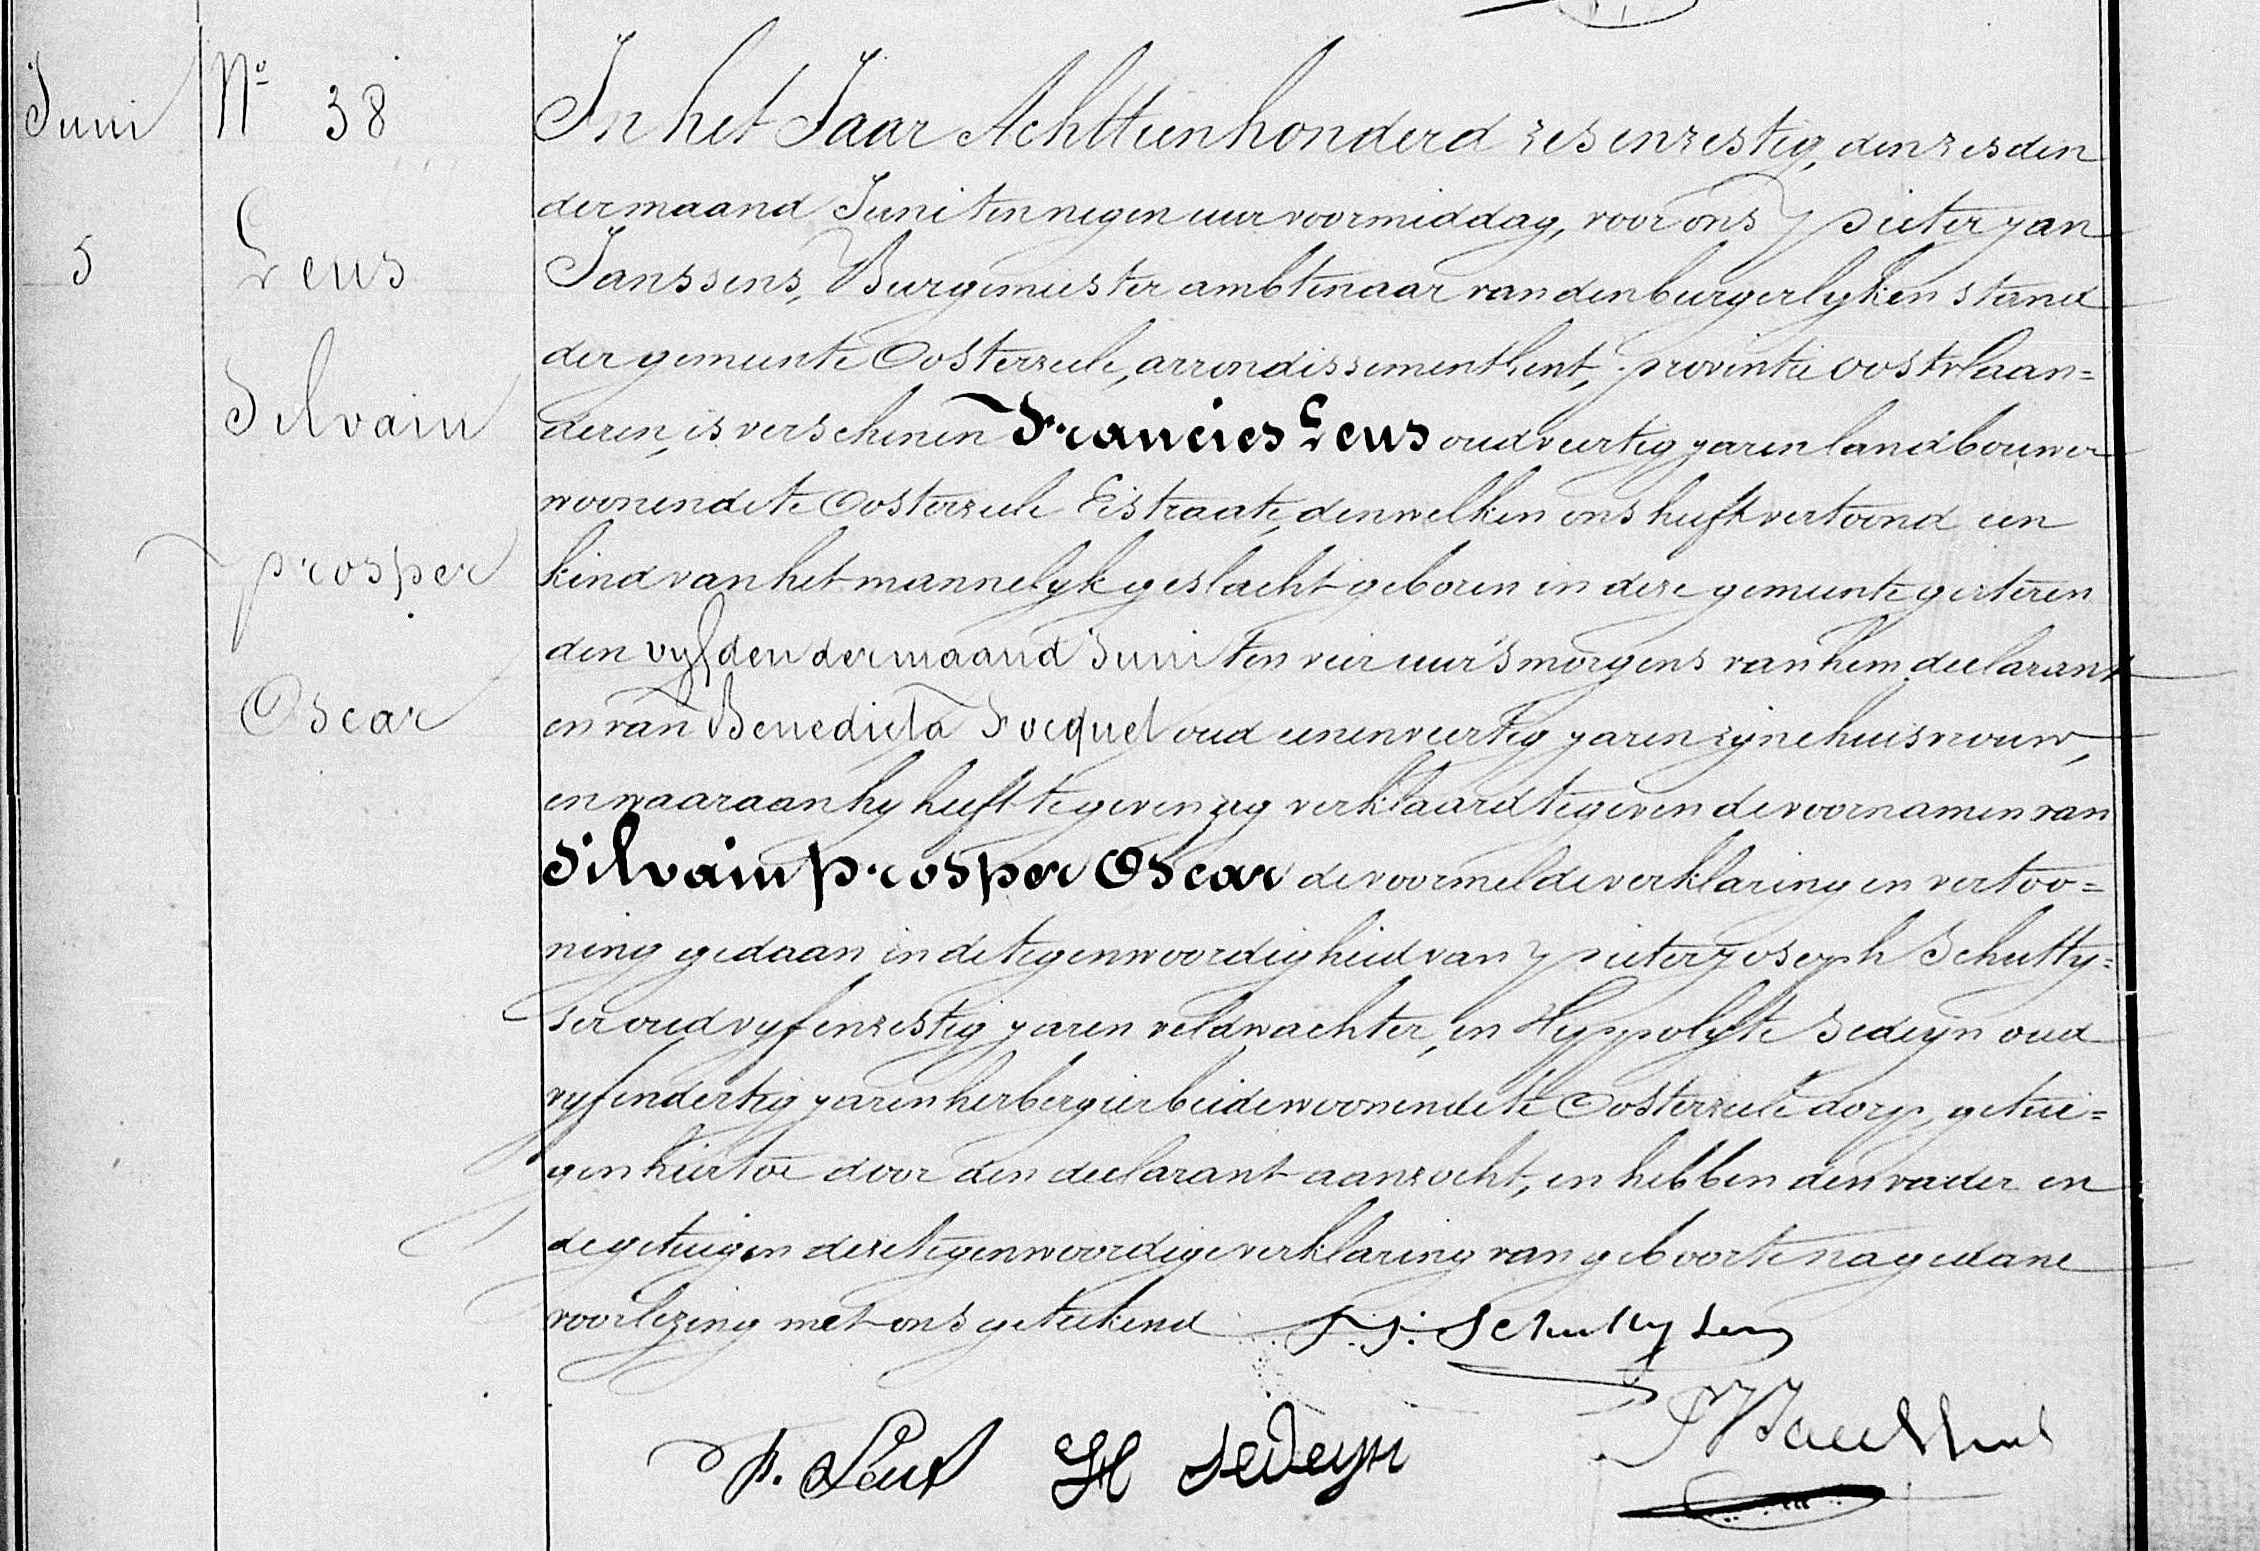 Juni
5
N° 38
Leus
Silvain
prosper
Oscar
In het Jaar Achttienhonderd zes en zestig, den zesden
der maand Juni ten negen uur voormiddag, voor ons pieter jan
Janssens, Burgemeester ambtenaar van den burgerlyken stand
der gemeente Oosterzeele, arrondissement Gent, provintie oostvlaan=
deren, is verschenen Francies Leus oud veertig jaren landbouwer
woonende te Oosterzeele Eistraate, denwelken ons heeft vertoond een
kind van het mannelyk geslacht geboren in deze gemeente gisteren
den vyfden der maand Juni ten vier uur 's morgens van hem declarant
en van Benedicta Focquet oud eenenveertig jaren zyne huisvrouw,
en waaraan hy heeft te geven zeg verklaard te geven de voornamen van
Silvain prosper Oscar de voormelde verklaring en vertoo=
ning gedaan in de tegenwoordigheid van pieter joseph Schutty=
ser oud vyfenzestig jaren veldwachter, en Hyppolyte Sedeyn oud
vyfendertig jaren herbergier beide woonende te Oosterzeele dorp, getui=
gen hiertoe door den declarant aanzocht, en hebben den vader en
de getuigen deze tegenwoordige verklaring van geboorte na gedane
voorlezing met ons geteekend P.J. Schuttyser
F. Leus H Sedeyn